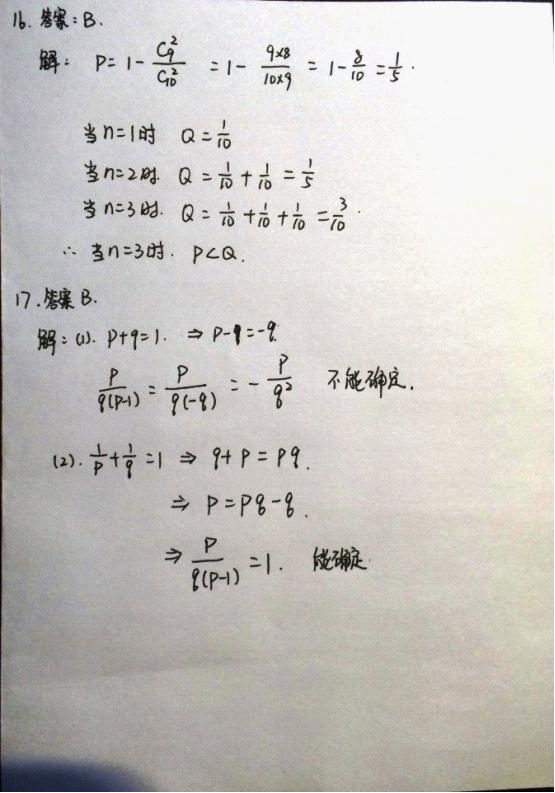 16. 答案: B.
解: P = 1 - C₉²/C₁₀² = 1 - 9×8/10×9 = 1 - 8/10 = 1/5.
当n=1时 Q = 1/10
当n=2时. Q = 1/10 + 1/10 = 1/5
当n=3时. Q = 1/10 + 1/10 + 1/10 = 3/10.
∴ 当n=3时. P<Q.
17. 答案 B.
解: (1). P+q=1. ⇒ P-1=-q.
P/q(P-1) = P/q(-q) = - P/q² 不能确定.
(2). 1/P + 1/q = 1 ⇒ q+P = Pq.
⇒ P = Pq - q.
⇒ P/q(P-1) = 1. 能确定.